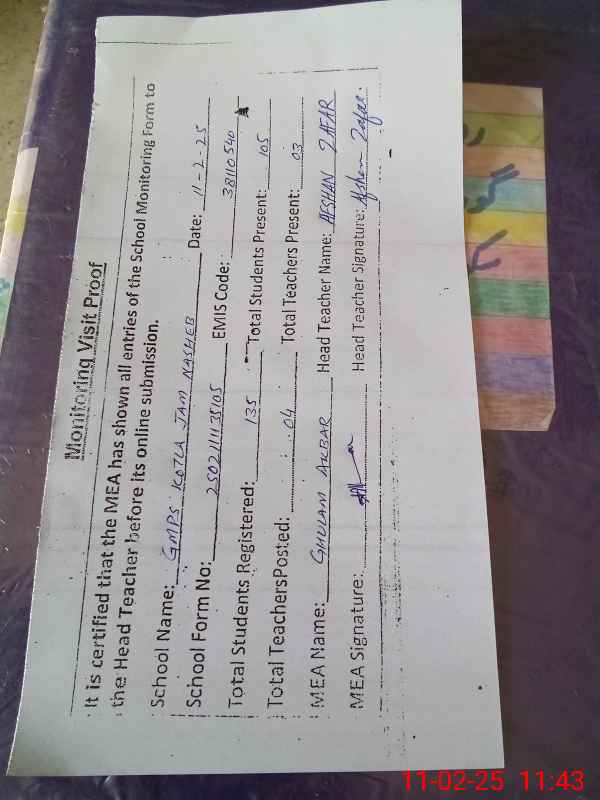 Monitoring Visit Proof
It is certified that the MEA has shown all entries of the School Monitoring Form to
the Head Teacher before its online submission.
School Name: GMPS KOTLA JAM NASHEB Date: 11-2-25
School Form No: 2502111135105 EMIS Code: 38110540
Total Students Registered: 135 Total Students Present: 105
Total TeachersPosted: 04 Total Teachers Present: 03
MEA Name: GHULAM AKBAR Head Teacher Name: AFSHAN ZAFAR
MEA Signature: Head Teacher Signature: Afshan Zafar.
11-02-25 11:43